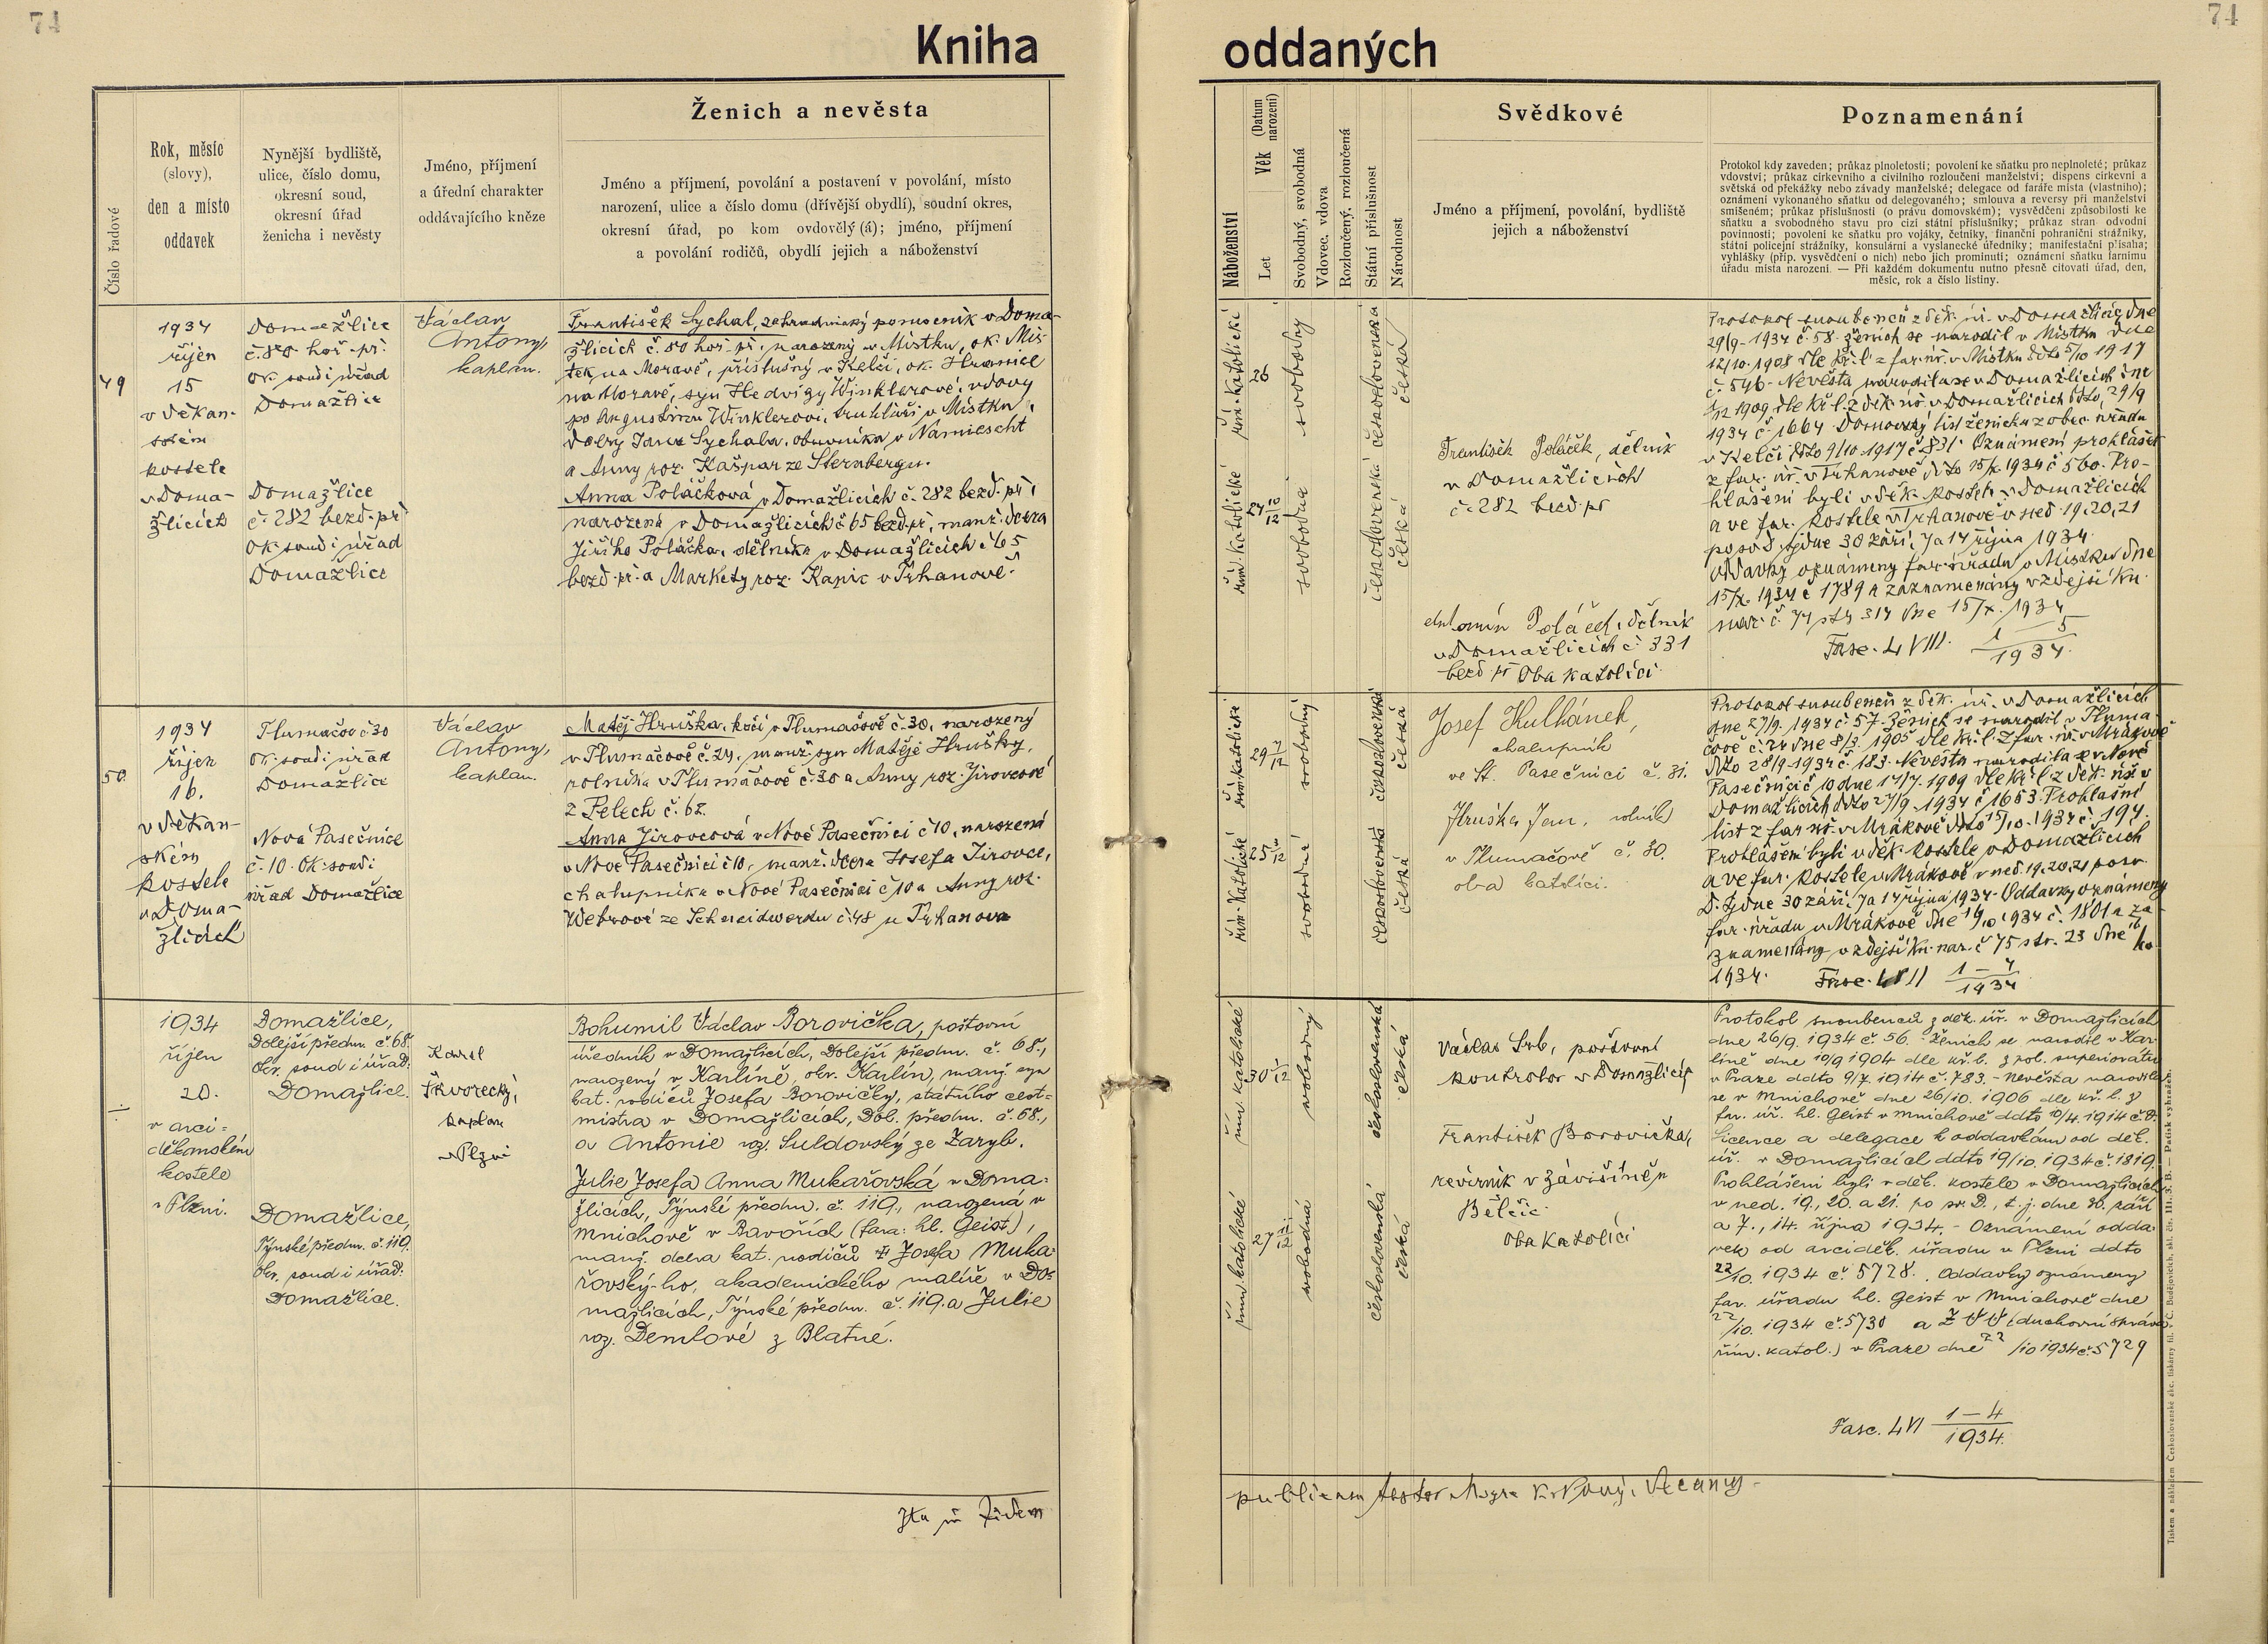 74
74
Kniha
oddaných
Číslo řadové
Rok, měsíc
(slovy),
den a místo
oddavek
Nynější bydliště,
ulice, číslo domu,
okresní soud,
okresní úřad
ženicha i nevěsty
Jméno, příjmení
a úřední charakter
oddávajícího kněze
Ženich a nevěsta
Jméno a příjmení, povolání a postavení v povolání, místo
narození, ulice a číslo domu (dřívější obydlí), soudní okres,
okresní úřad, po kom ovdovělý (á); jméno, příjmení
a povolání rodičů, obydlí jejich a náboženství
Náboženství
Věk (Datum narození)
Let
Svobodný, svobodná
Vdovec, vdova
Rozloučený, rozloučená
Státní příslušnost
Národnost
Svědkové
Jméno a příjmení, povolání, bydliště
jejich a náboženství
Poznamenání
Protokol kdy zaveden; průkaz plnoletosti; povolení ke sňatku pro neplnoleté; průkaz
vdovství; průkaz církevního a civilního rozloučení manželství; dispens církevní a
světská od překážky nebo závady manželské; delegace od faráře místa (vlastního);
oznámení vykonaného sňatku od delegovaného; smlouva a reversy při manželství
smíšeném; průkaz příslušnosti (o právu domovském); vysvědčení způsobilosti ke
sňatku a svobodného stavu pro cizí státní příslušníky; průkaz stran odvodní
povinnosti; povolení ke sňatku pro vojáky, četníky, finanční pohraniční strážníky,
státní policejní strážníky, konsulární a vyslanecké úředníky; manifestační přísaha;
vyhlášky (příp. vysvědčení o nich) nebo jich prominutí; oznámení sňatku farnímu
úřadu místa narození. — Při každém dokumentu nutno přesně citovati úřad, den,
měsíc, rok a číslo listiny.
49
1934
říjen
15
v děkan-
ském
kostele
v Doma-
žlicích
Domažlice
č. 80 hoř. př.
ok. soud i úřad
Domažlice
Domažlice
č. 282 bezd. př.
ok. soud i úřad
Domažlice
Václav
Antony,
kaplan.
František Sychal, zahradnický pomocník v Doma-
žlicích č. 80 hoř. př., narozený v Místku, ok. Mís-
tek na Moravě, příslušný v Kelči, ok. Hranice
na Moravě, syn Hedvigy Winklerové, vdovy
po Augustinu Winklerovi, truhláři v Místku,
dcery Jana Sychala, obuvníka v Namiescht
a Anny roz. Kašpar ze Sternbergu.
Anna Poláčková v Domažlicích č. 282 bezd. př.,
narozená v Domažlicích č 65 bezd. př., manž. dcera
Jiřího Poláčka, dělníka v Domažlicích č 65
bezd. př. a Markety roz. Kapic v Trhanově.
řím. katolické
řím. katolické
26
svobodný
svobodná
československá
československá
česká
česká
František Poláček, dělník
v Domažlicích
č. 282 bezd. př
Antonín Poláček, dělník
v Domažlicích č. 331
bezd. př Oba katolíci.
Protokol snoubenců z děk. úř. v Domažlicích dne
29/9. 1934 č. 58. Ženich se narodil v Místku dne
12/10. 1908 dle kř. l. z far. úř. v Místku ddto 5/10 1917
č. 546. Nevěsta narodila se v Domažlicích dne
1909 dle kř. l. z děk. úř. v Domažlicích ddto 29/9
1934 č. 1664. Domovský list ženicha z obec. úřadu
v Kelči ddto 9/10. 1917 č 831. Oznámení prohlášek
z far. úř. v Trhanově ddto 15/X. 1934 č 560. Pro-
hlášeni byli v děk. kostele v Domažlicích
a ve far. kostele v Trhanově v ned. 19, 20, 21
po sv. D. tj. dne 30 září, 7 a 14 října 1934.
Oddavky oznámeny far. úřadu v Místku dne
15/X. 1934 č 1789 a zaznamenány v zdejší kn.
nar. č. 74 str 314 dne 15/X. 1934
Fasc. LVIII. 1 — 5 / 1934.
50.
1934
říjen
16.
v děkan-
ském
kostele
v Doma-
žlicích
Tlumačov č 30
ok. soud i úřad
Domažlice
Nová Pasečnice
č. 10. Ok. soud i
úřad Domažlice
Václav
Antony,
kaplan.
Matěj Hruška, kočí v Tlumačově č. 30, narozený
v Tlumačově č. 24, manž. syn Matěje Hrušky,
rolníka v Tlumačově č. 30 a Anny roz. Jirovcové
z Pelech č. 62.
Anna Jirovcová v Nové Pasečnici č 10, narozená
v Nové Pasečnici č 10, manž. dcera Josefa Jirovce,
chalupníka v Nové Pasečnici č 10 a Anny roz.
Webrové ze Schneidworku č. 48 u Trhanova
řím. katolické
řím. katolické
29 7/12
svobodný
svobodná
československá
československá
česká
česká
Josef Kulhánek,
chalupník
ve St. Pasečnici č. 31.
Hruška Jan, rolník
v Tlumačově č. 30.
oba katolíci.
Protokol snoubenců z děk. úř. v Domažlicích
dne 27/9. 1934 č. 57. Ženich se narodil v Tluma-
čově č. 24 dne 8/3. 1905 dle kř. l. z far. úř. v Mrákově
ddto 28/9 1934 č. 183. Nevěsta narodila se v Nové
Pasečnici č 10 dne 17/7. 1909 dle kř. l. z děk. úř. v
Domažlicích ddto 27/9. 1934 č 1653. Prohlašní
list z far. úř. v Mrákově ddto 15/10. 1934 č. 194.
Prohlášeni byli v děk. kostele v Domažlicích
a ve far. kostele v Mrákově v ned. 19, 20, 21 po sv.
D. tj. dne 30 září, 7 a 14 října 1934. Oddavky oznámeny
far. úřadu v Mrákově dne 1934 č. 1801 a za-
znamenány v zdejší kn. nar. č 75 str. 23 dne
1934. Fasc. LVII 1 — 4 / 1934
1934
říjen
20.
v arci-
děkanském
kostele
v Plzni.
Domažlice,
Dolejší předm. č. 68.
okr. soud i úřad:
Domažlice.
Domažlice,
Týnské předm. č. 119.
okr. soud i úřad:
Domažlice.
Karel
Škvorecký,
kaplan
v Plzni
Bohumil Václav Borovička, poštovní
úředník v Domažlicích, Dolejší předm. č. 68.,
narozený v Karlíně, okr. Karlín, manž. syn
kat. rodičů Josefa Borovičky, státního cest-
mistra v Domažlicích, Dol. předm. č. 68.,
a Antonie roz. Suldovský ze Zaryb.
Julie Josefa Anna Mukařovská v Doma-
žlicích, Týnské předm. č. 119., narozená v
Mnichově v Bavořích (fara: hl. Geist),
manž. dcera kat. rodičů Josefa Muka-
řovský-ho, akademického malíře v Do-
mažlicích, Týnské předm. č. 119. a Julie
roz. Demlové z Blatné.
řím. katolické
řím. katolické
svobodný
svobodná
československá
československá
česká
česká
Václav Srb, poštovní
kontrolor v Domažlicích
František Borovička,
revírník v Závišíně u
Bělčic.
Oba katolíci
Protokol snoubenců z děk. úř. v Domažlicích
dne 26/9. 1934 č. 56. Ženich se narodil v Kar-
líně dne 10/9 1904 dle kř. l. z pol. superiorátu
v Praze ddto 9/7. 1914 č. 783. – Nevěsta narodila
se v Mnichově dne 26/10. 1906 dle kř. l. z
far. úř. hl. Geist v Mnichově ddto 10/4. 1914
Licence a delegace k oddavkám od děk.
úř. v Domažlicích ddto 19/10. 1934 č. 1819.
Prohlášeni byli v děk. kostele v Domažlicích
v ned. 19., 20. a 21. po sv. D., t. j. dne 30. září
a 7., 14. října 1934. – Oznámení odda-
vek od arciděk. úřadu v Plzni ddto
22/10. 1934 č. 5728. Oddavky oznámeny
far. úřadu hl. Geist v Mnichově dne
22/10. 1934 č. 5730 a ZVV (duchovní správa
řím. katol.) v Praze dne 22/10 1934 č. 5729
Fasc. LVI 1 — 4 / 1934.
Ita in fidem
publicam testor
Tiskem a nákladem Českoslovanské akc. tiskárny fil. v Č. Budějovicích, skl. čís. III. S. B. — Patisk vyhrazen.